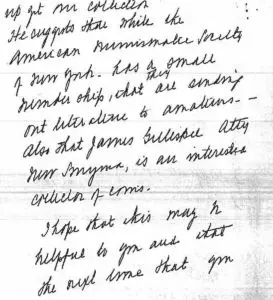 He suggests that while the
American Numismatic Society
of New York. has a small
member ship, that they are sending
out literature to amateurs. –
Also that James Gillespie Atty
New Smyrna, is an interested
collector of coins.
I hope that this may be
helpful to you and that
the next time that you